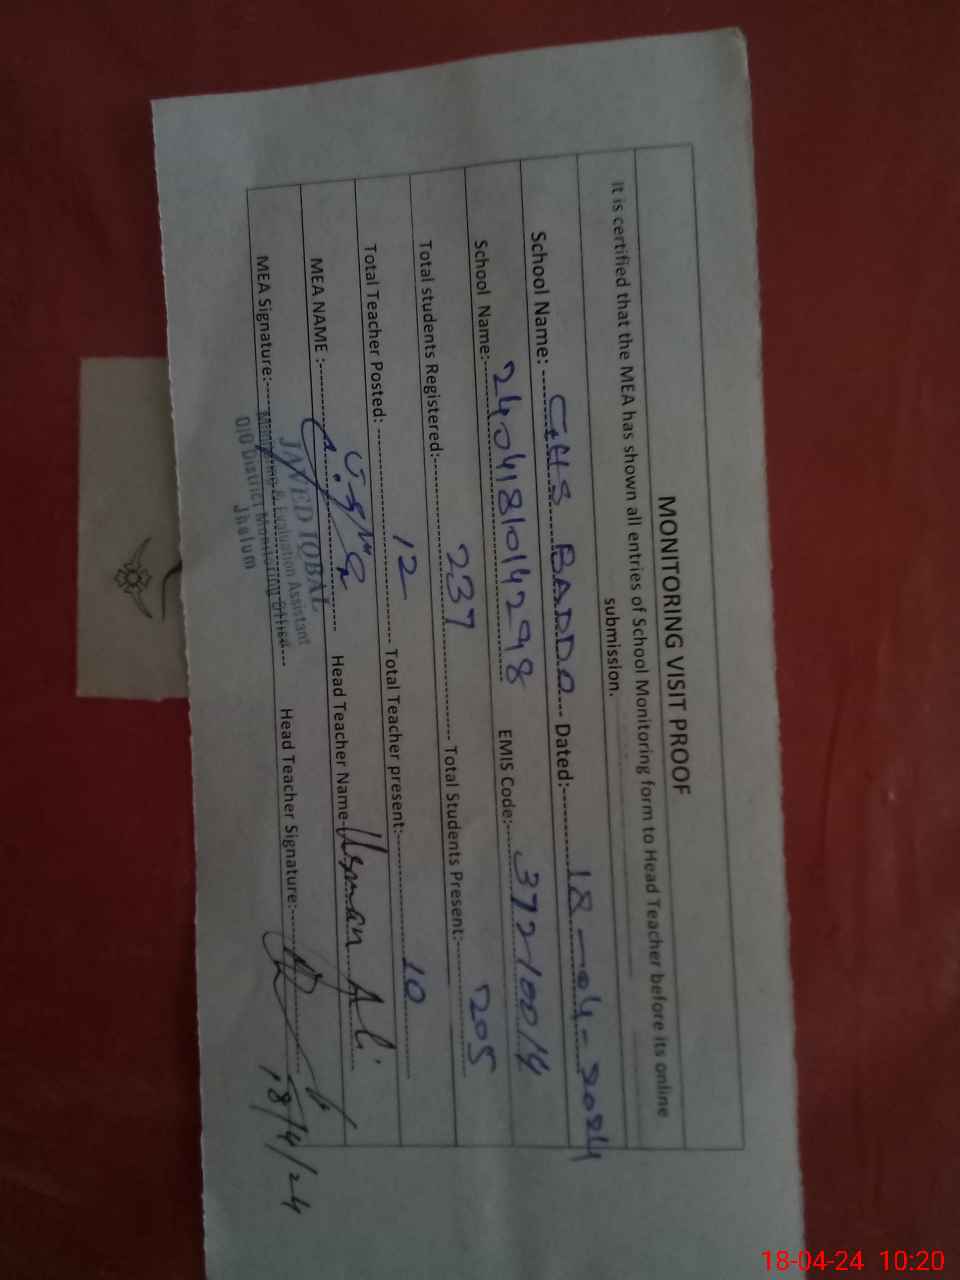 MONITORING VISIT PROOF
It is certified that the MEA has shown all entries of School Monitoring form to Head Teacher before its online
submission.
School Name: ---- GHS BADDO --- Dated:- 18-04-2024
School Name:- 2404181014298 EMIS Code:- 37210014
Total students Registered:- 237 Total Students Present:- 205
Total Teacher Posted: --- 12 --- Total Teacher present:- 10
MEA NAME :- Head Teacher Name- Usman Ali
MEA Signature:--- Head Teacher Signature:--
JAVED IQBAL
Monitoring & Evaluation Assistant
O/O District Monitoring Office
Jhelum
18/4/24
18-04-24 10:20